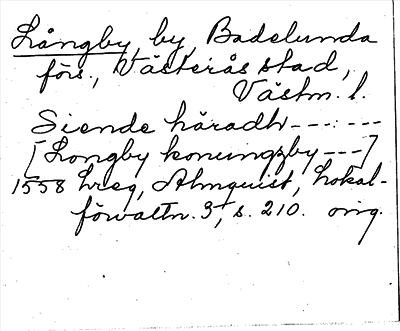 Långby, by, Badelunda
förs., Västerås stad,
Västm. l.
Siende häradh ---:---
[Longby konungzby ---]
1558 hreg, Almquist, Lokal-
förvaltn. 3, s. 210. orig.